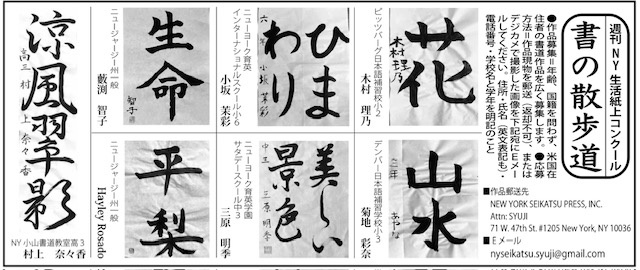 週刊NY生活紙上コンクール
書の散歩道
●作品募集=年齢、国籍を問わず、米国在
住者の書道作品を広く募集します。●応募
方法=作品現物を郵送(返却不可)、または
デジカメで撮影した画像を下記宛にEメー
ルしてください。住所・氏名(英文表記も)・
電話番号・学校名と学年を明記のこと
■作品郵送先
NEW YORK SEIKATSU PRESS, INC.
Attn: SYUJI
71 W. 47th St. #1205 New York, NY 10036
■Eメール
nyseikatsu.syuji@gmail.com
花
木村理乃
ピッツバーグ日本語補習校小2
木村 理乃
山水
三年
あやな
デンバー日本語補習学校小3
菊地 彩奈
ひま
わり
六年 小坂 茉彩
ニューヨーク育英
インターナショナルスクール小6
小坂 茉彩
美しい
景色
中三 三原 明季
ニューヨーク育英学園
サタデースクール中3
三原 明季
生命
智子
ニュージャージー州一般
藪渕 智子
平梨
ニュージャージー州一般
Hayley Rosado
涼風翠影
高三 村上 奈々香
NY小山書道教室高3
村上 奈々香